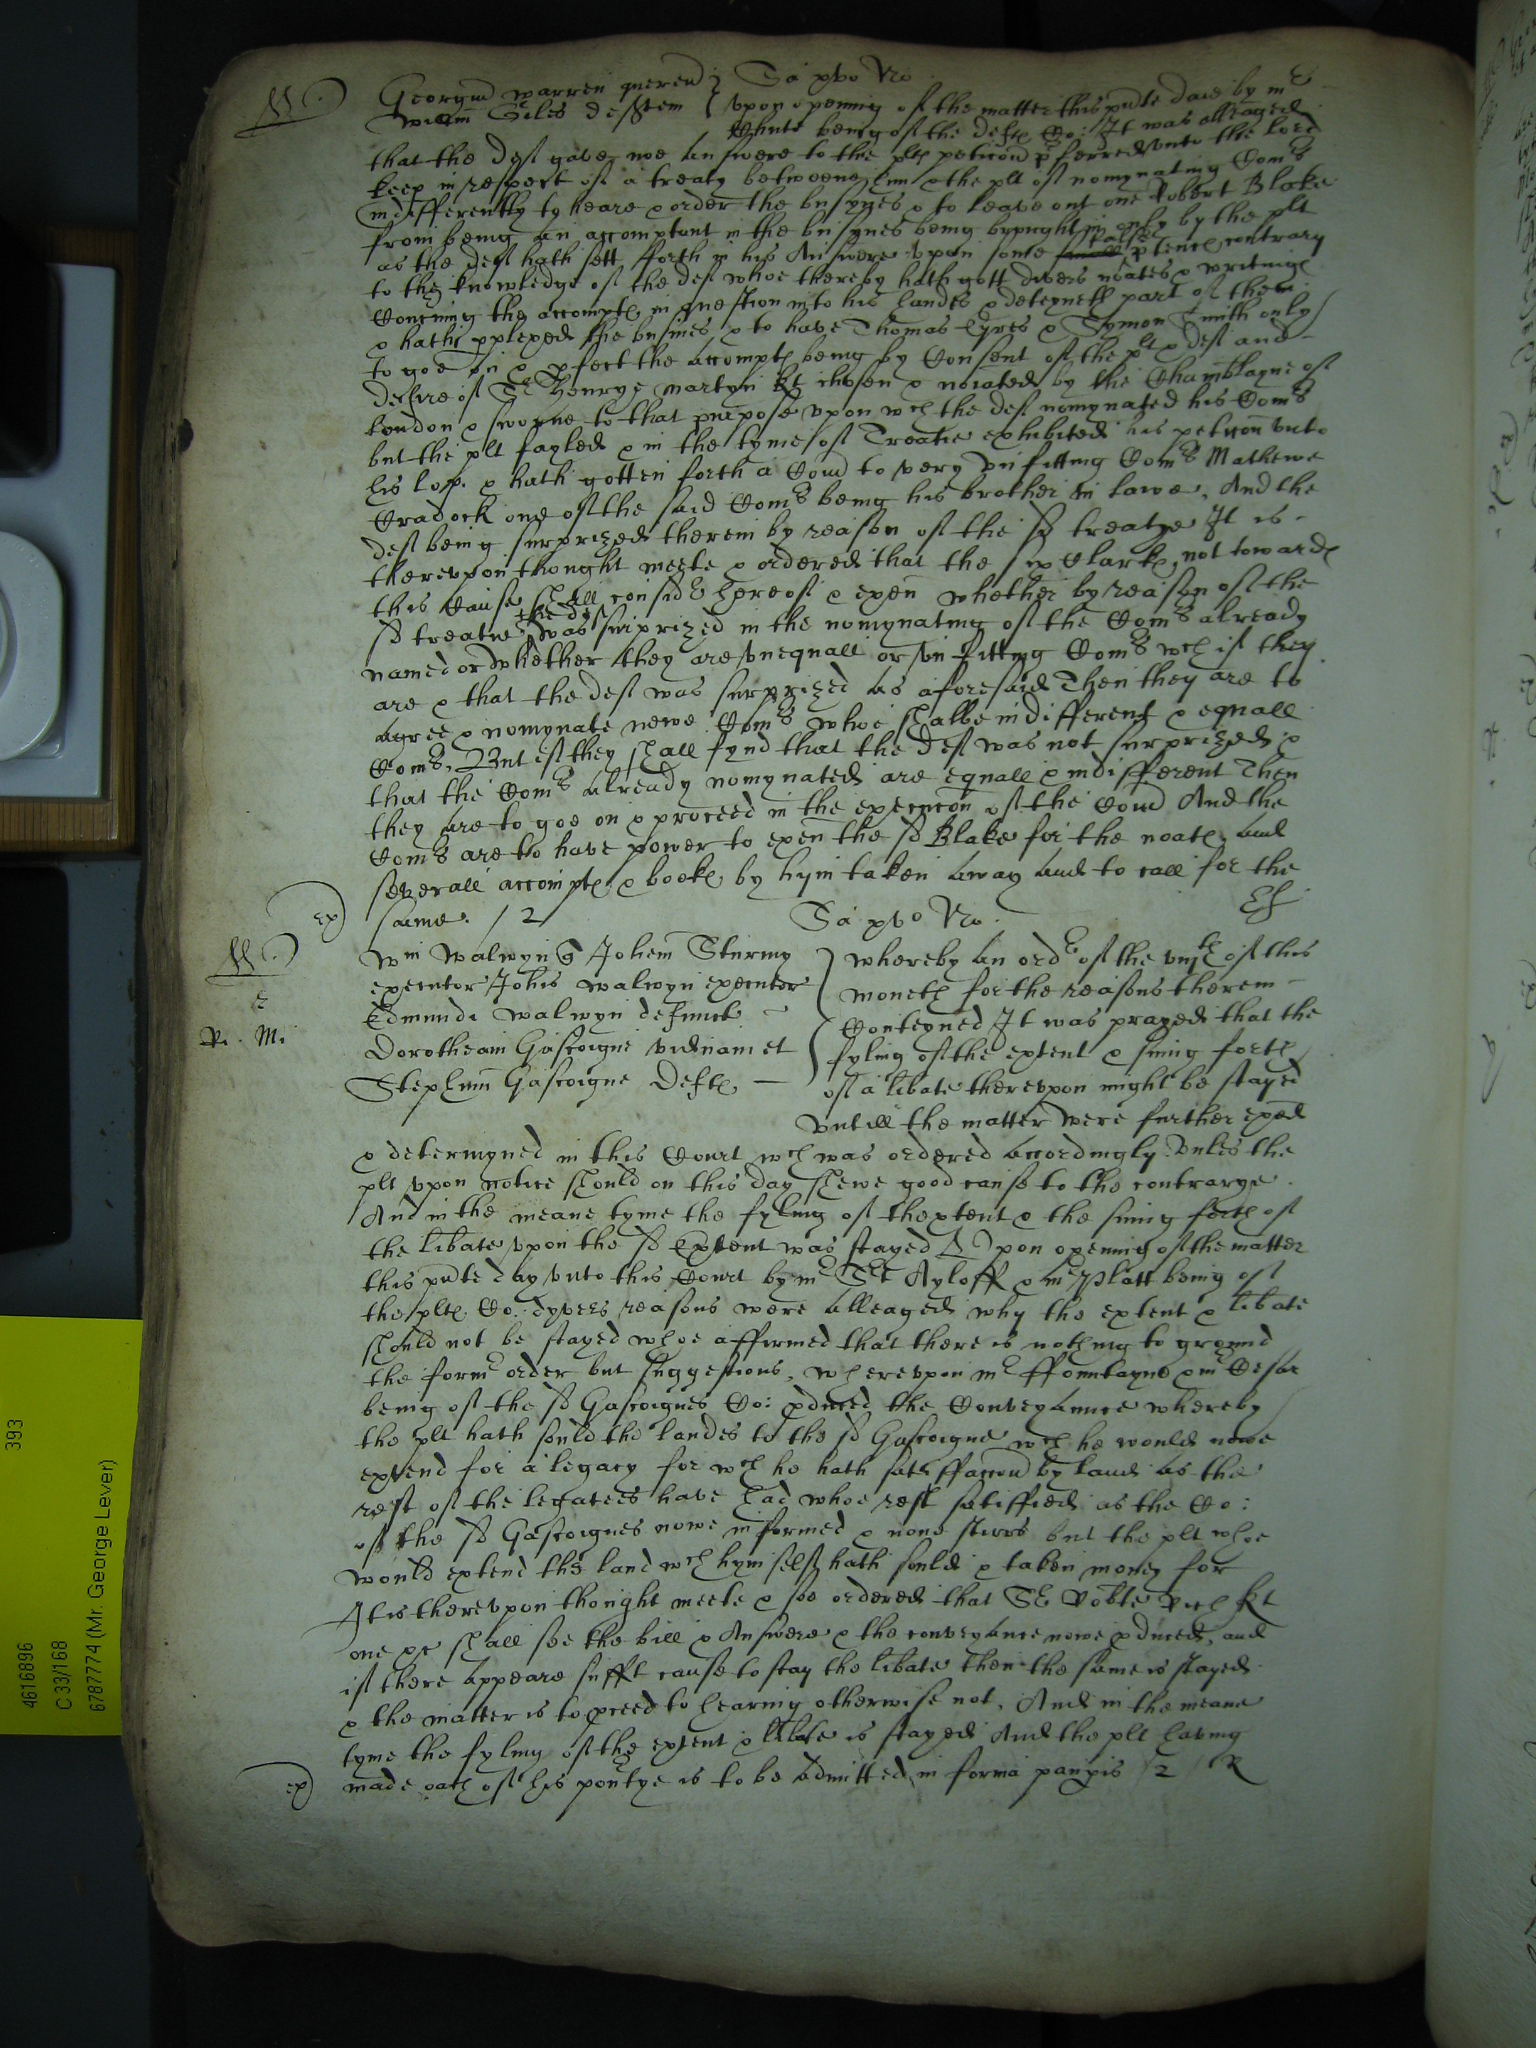 Georgius Warren querens Sa xvo No
Willm Giles defftem upon opening of the matter this pnte daie by mr
Chute being of the defts Co: It was alleaged
that the deft gave noe answere to the plts peticon pferred unto the lord
keep in respect of a treaty betweene him & the plt of nomynating Comrs
indifferently to heare & order the busynes & to leave out one Robert Blake
from being an accomptant in the busynes being brought in only by the plt
as the deft hath sett forth in his Answere upon some false ptence contrary
to the knowledge of the deft whoe thereby hath gott divers noates & writings
Concning the accompts in question into his hands & deteyneth part of them
& hath pplexed the busines & to have Thomas Eyres & Symon Smith only
to goe on & pfect the accompts being by Consent of the plt & deft and
desire of Sr Henrye Martyn kt chosen & noiated by the Chamblayne of
London & sworne to that purpose upon wch the deft nomynated his Comrs
but the plt fayled & in the tyme of Treatie exhibited his peticon unto
his lop. & hath gotten forth a Com to very unfitting Comrs Mathewe
Cradock one of the said Comrs being his brother in lawe, And the
deft being surprized therein by reason of the sd treatye It is
thereupon thought meete & ordered that the six Clarks, not towards
this Cause shall consider hereof & exen whether by reason of the
sd treatie the deft was surprized in the nomynating of the Comrs already
named or whether they are unequall or unfitting Comrs wch if they
are & that the deft was surprized as aforesaid Then they are to
agree & nomynate newe Comrs whoe shalbe indifferent & equall
Comrs, But if they shall fynd that the deft was not surprized &
that the Comrs already nomynated are equall & indifferent Then
they are to goe on & proceed in the execucon of the Com And the
Comrs are to have power to exen the sd Blake for the noats and
severall accompts & books by hym taken away and to call for the
ex) same. / 2 Sa xvo No.
Wm Walwyn Johem Sturmy whereby an order of the of this
executor Johis Walwyn executor moneth for the reasons therein
Edmundi Walwyn defunct Conteyned It was prayed that the
R. M. Dorotheam Gascoigne viduam et fyling of the extent & suing forth
Stephum Gascoigne Defts of a libate thereupon might be stayed
untill the matter were further exed
& determyned in this Court wch was ordered accordingly Unles the
plt upon notice should on this day shewe good cause to the contrarye
And in the meane tyme the fyling of thextent & the suing forth of
the libate upon the sd Extent was stayed Upon opening of the matter
this pnte day unto this Court by mr Sert Ayloff & mr Platt being of
the plts Co: dyvers reasons were alleaged why the extent & libate
should not be stayed whoe affirmed that there is nothing to ground
the former order but suggestions, whereupon mr ffountayne & mr Cesar
being of the sd Gascoignes Co: pduced the Conveyance whereby
the plt hath sould the landes to the sd Gascoigne wch he would nowe
extend for a legacy for wch he hath satisffaccon by land as the
rest of the legatees have had whoe rest satiffied as the Co:
of the sd Gascoignes nowe informed & none stirrs but the plt whoe
would extend the land wch hymself hath sould & taken money for
It is thereupon thought meete & soe ordered that Sr Robte Rich kt
one &c shall see the bill & Answere & the conveyance nowe pduced, and
if there appeare sufft cause to stay the libate then the same is stayed
& the matter is to pceed to hearing otherwise not, And in the meane
tyme the fyling of the extent & libate is stayed And the plt having
ex) made oath of his povtye is to be admitted in forma paupis / 2 / R
4616896 393
C 33/168
6787774 (Mr. George Lever)